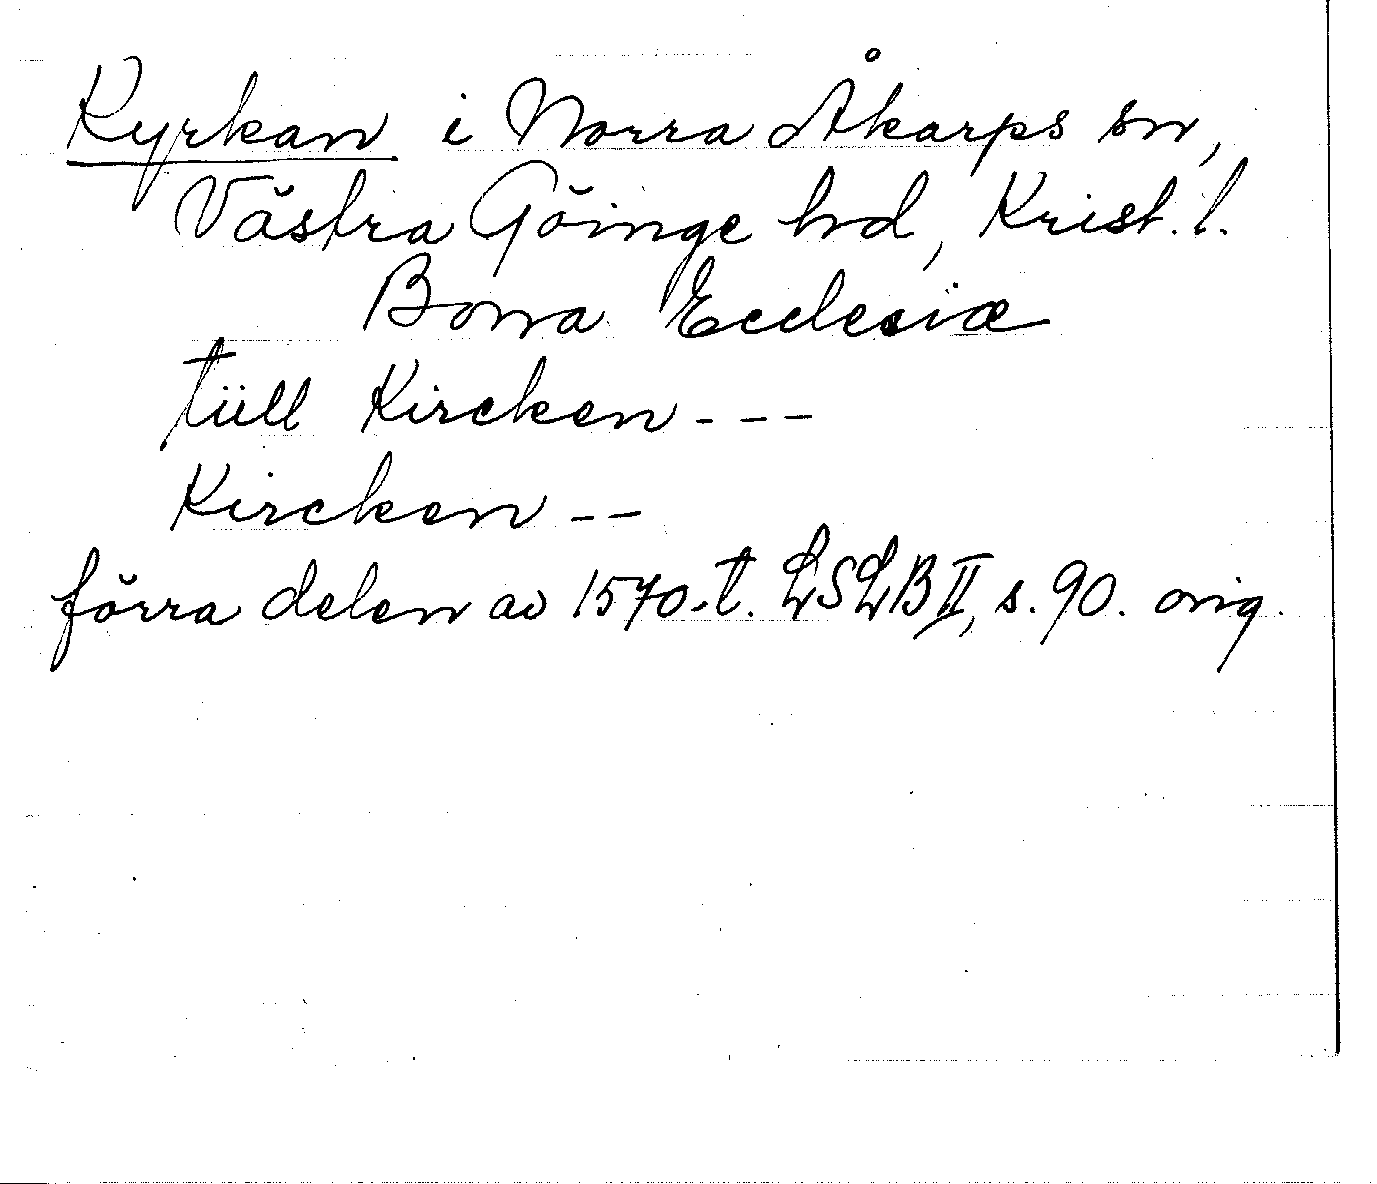 Kyrkan i Norra Åkarps sn,
Västra Göinge hrd, Krist. l.
Bona Ecclesiæ
tüll Kircken - - -
Kircken - -
förra delen av 1570-t. LSLB II, s. 90. orig.